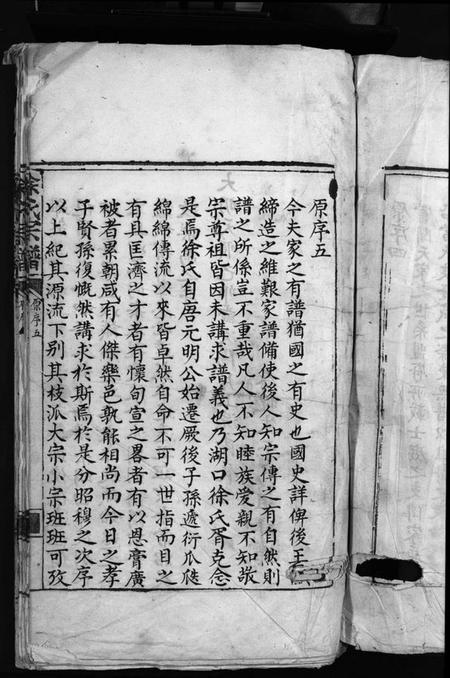 原序五
今夫家之有譜猶國之有史也國史詳俾後王
締造之維艱家譜備使後人知宗傳之有自然則
譜之所係豈不重哉凡人不知睦族愛親不知敬
宗尊祖皆因未講求譜義也乃湖口徐氏胥克念
是焉徐氏自唐元明公始遷厥後子孫遞衍瓜瓞
綿綿傳流以來皆卓然自命不可一世指而目之
有具匡濟之才者有懷旬宣之畧者有以恩膏廣
被者累朝咸有人傑欒邑孰能相尚而今日之孝
子賢孫復慨然講求於斯焉於是分昭穆之次序
以上紀其源流下別其枝派大宗小宗班班可攷
徐氏宗譜
原序五